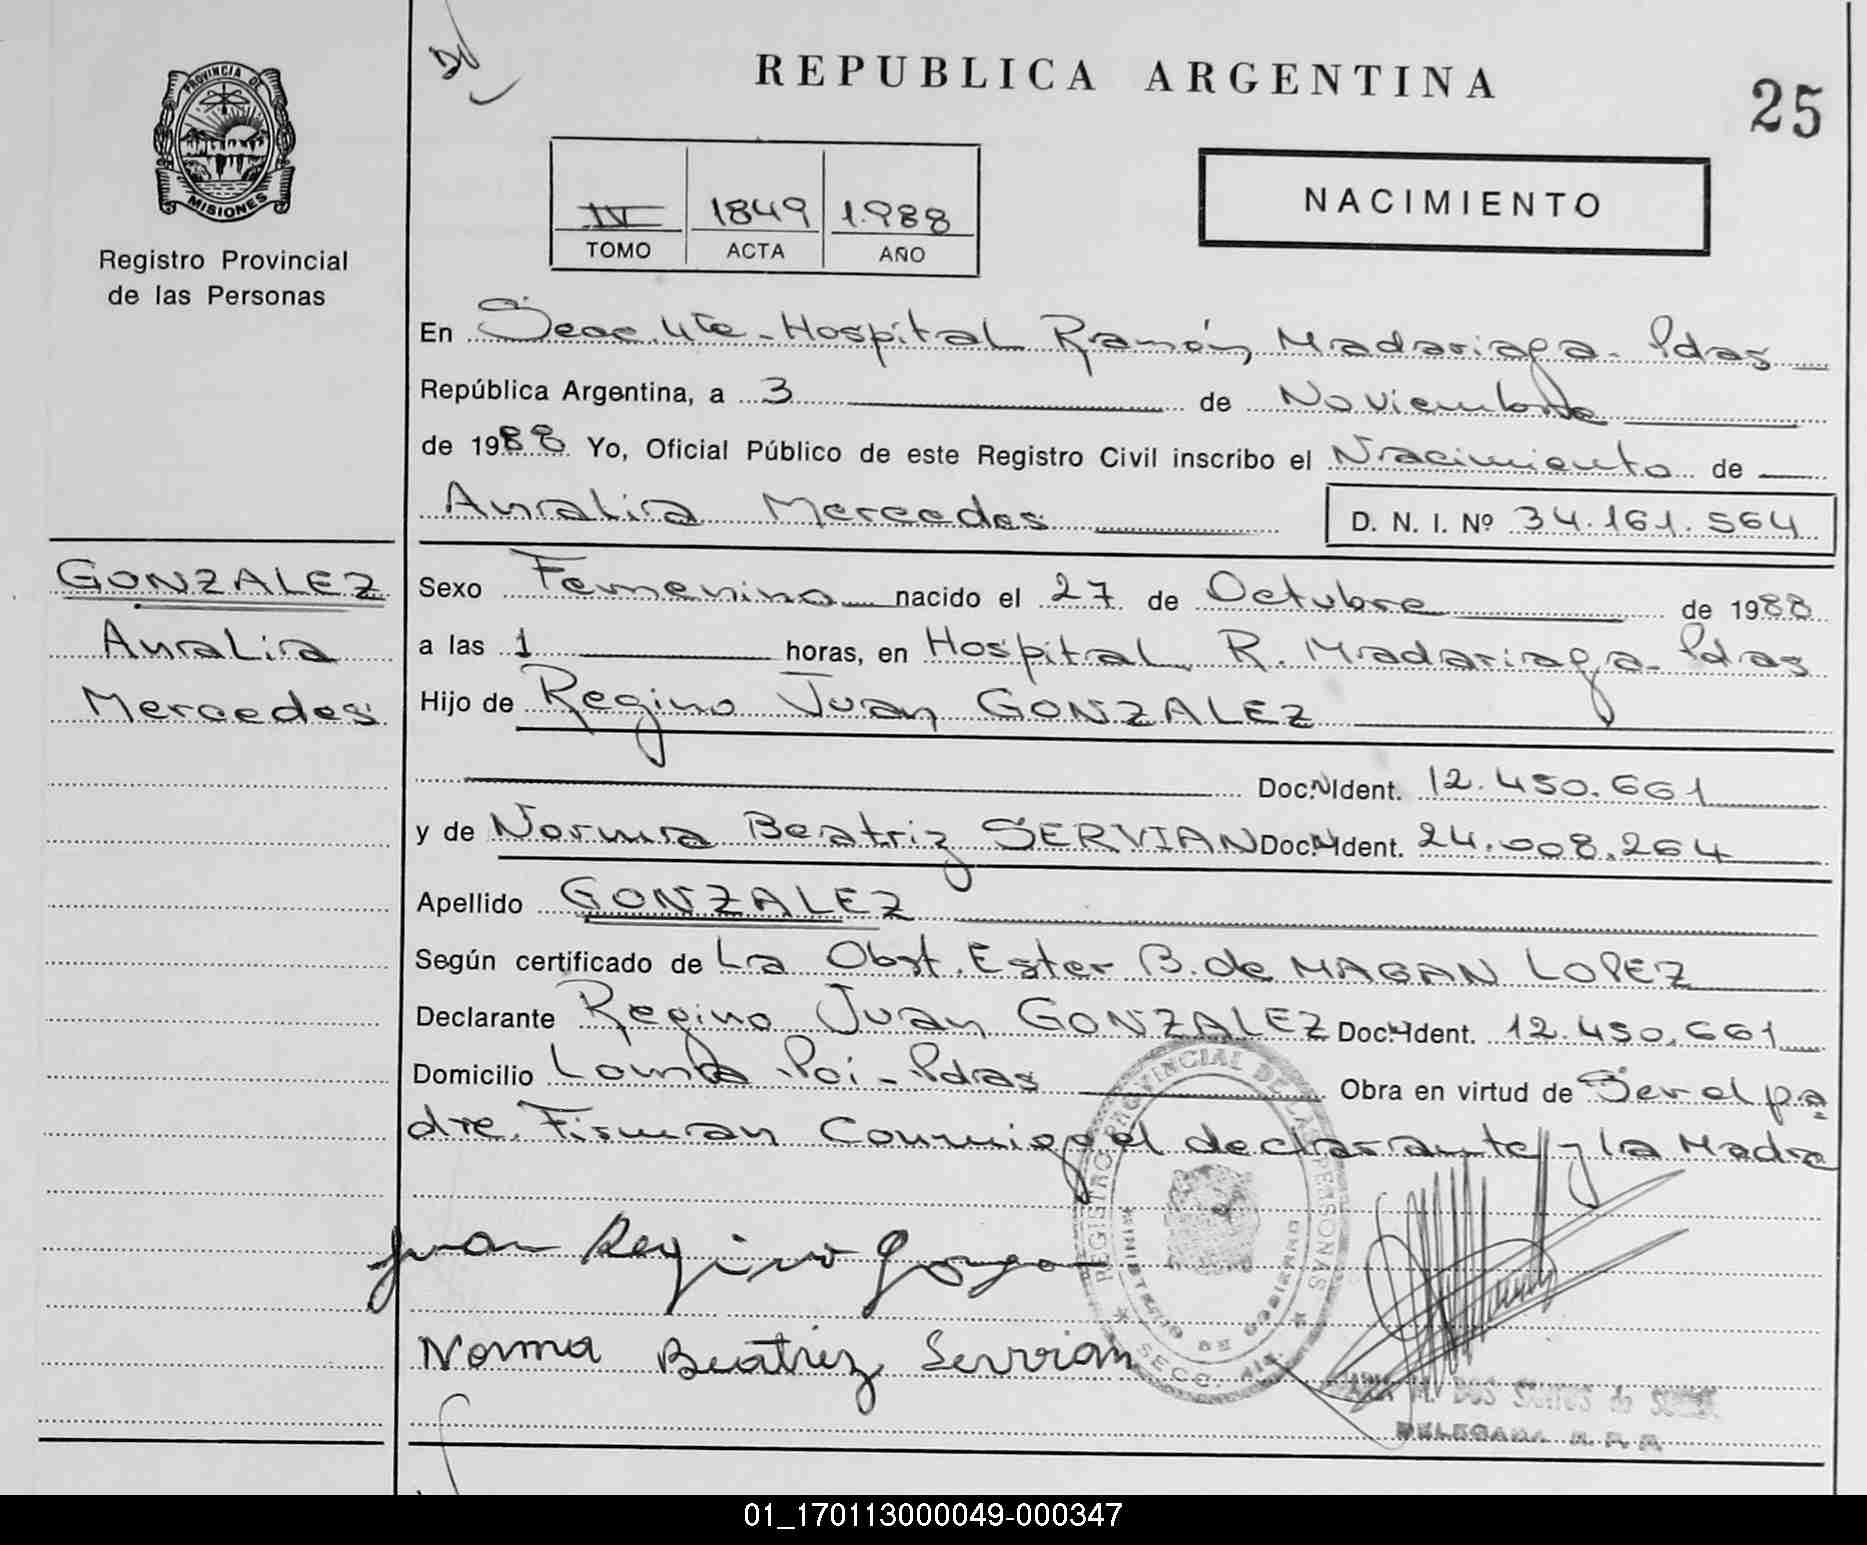 REPUBLICA ARGENTINA
25
PROVINCIA DE MISIONES
Registro Provincial
de las Personas
IV 1849 1.988
TOMO ACTA AÑO
NACIMIENTO
En Secc. 4ta - Hospital Ramón Madariaga - Pdas
República Argentina, a 3 de Noviembre
de 1988 Yo, Oficial Público de este Registro Civil inscribo el Nacimiento de
Analia Mercedes D. N. I. Nº 34.161.564
GONZALEZ
Analia
Mercedes
Sexo Femenino nacido el 27 de Octubre de 1988
a las 1 horas, en Hospital R. Madariaga - Pdas
Hijo de Regino Juan GONZALEZ
Doc. Ident. 12.450.661
y de Norma Beatriz SERVIAN Doc. Ident. 24.008.264
Apellido GONZALEZ
Según certificado de La Obst. Ester B. de MAGAN LOPEZ
Declarante Regino Juan GONZALEZ Doc. Ident. 12.450.661
Domicilio Loma Poi - Pdas Obra en virtud de Ser el pa
dre. Firman Conmigo el declarante y la Madre
REGISTRO PROVINCIAL DE LAS PERSONAS
MINISTERIO DE GOBIERNO
SECC. 4ta.
Juan Regino
Norma Beatriz Servian
M. DOS SANTOS de
DELEGADA R. P. P.
01_170113000049-000347